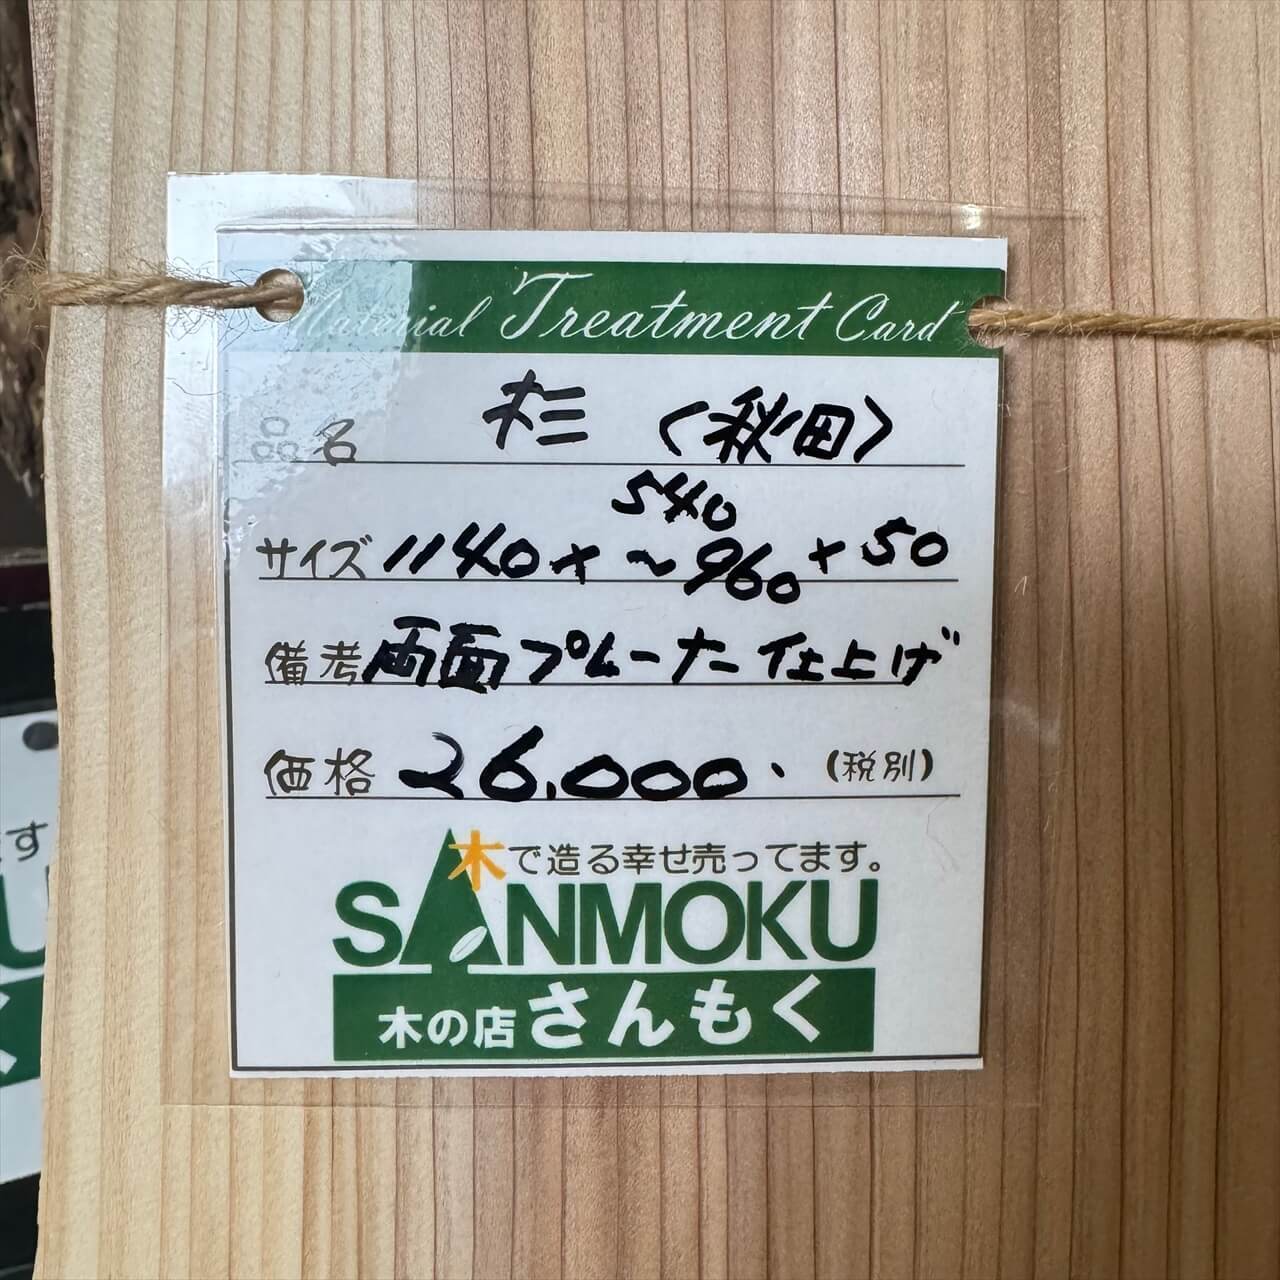 Material Treatment Card
品名 杉 〈秋田〉
サイズ 1140 × 540～960 × 50
備考 両面プレーナー仕上げ
価格 26,000. (税別)
木で造る幸せ売ってます。
SANMOKU
木の店 さんもく
す
U
く